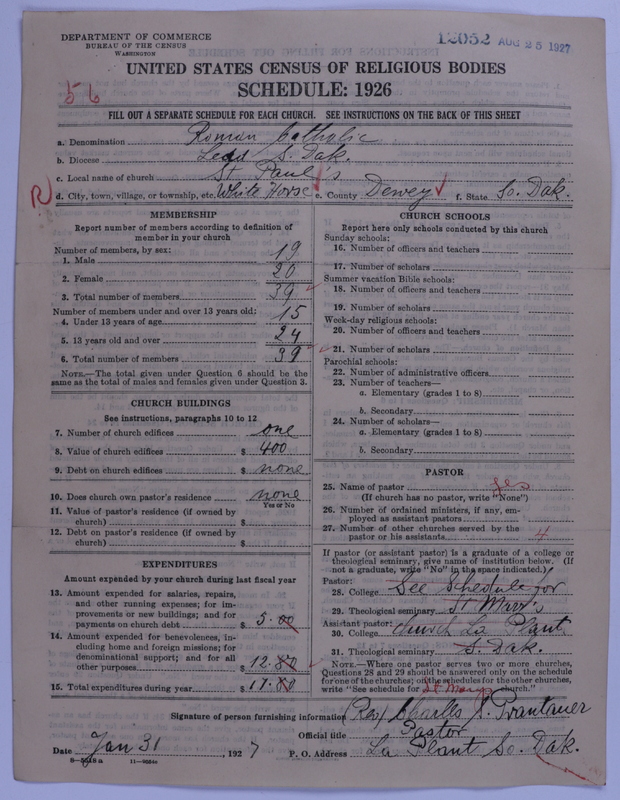 DEPARTMENT OF COMMERCE
BUREAU OF THE CENSUS
WASHINGTON
12052 AUG 25 1927
UNITED STATES CENSUS OF RELIGIOUS BODIES
SCHEDULE: 1926
56
FILL OUT A SEPARATE SCHEDULE FOR EACH CHURCH. SEE INSTRUCTIONS ON THE BACK OF THIS SHEET
a. Denomination Roman Catholic
b. Diocese Lead S. Dak.
c. Local name of church St Paul's
R
d. City, town, village, or township, etc. White Horse e. County Dewey f. State So. Dak.
MEMBERSHIP
Report number of members according to definition of
member in your church
Number of members, by sex:
1. Male 19
2. Female 20
3. Total number of members 39
Number of members under and over 13 years old:
4. Under 13 years of age 15
5. 13 years old and over 24
6. Total number of members 39
NOTE.—The total given under Question 6 should be
same as the total of males and females given under Question 3.
CHURCH BUILDINGS
See instructions, paragraphs 10 to 12
7. Number of church edifices one
8. Value of church edifices $ 400
9. Debt on church edifices $ none
10. Does church own pastor's residence none
Yes or No
11. Value of pastor's residence (if owned by
church) $
12. Debt on pastor's residence (if owned by
church) $
EXPENDITURES
Amount expended by your church during last fiscal year
13. Amount expended for salaries, repairs,
and other running expenses; for im-
provements or new buildings; and for
payments on church debt $ 5.00
14. Amount expended for benevolences, in-
cluding home and foreign missions; for
denominational support; and for all
other purposes $ 12.80
15. Total expenditures during year $ 17.80
CHURCH SCHOOLS
Report here only schools conducted by this church
Sunday schools:
16. Number of officers and teachers
17. Number of scholars
Summer vacation Bible schools:
18. Number of officers and teachers
19. Number of scholars
Week-day religious schools:
20. Number of officers and teachers
21. Number of scholars
Parochial schools:
22. Number of administrative officers
23. Number of teachers—
a. Elementary (grades 1 to 8)
b. Secondary
24. Number of scholars—
a. Elementary (grades 1 to 8)
b. Secondary
PASTOR
25. Name of pastor yes
(If church has no pastor, write "None")
26. Number of ordained ministers, if any, em-
ployed as assistant pastors
27. Number of other churches served by the
pastor or his assistants 4
If pastor (or assistant pastor) is a graduate of a college or
theological seminary, give name of institution below. (If
not a graduate, write "No" in the space indicated.)
Pastor:
28. College See Schedule for
29. Theological seminary St Mary's
Assistant pastor:
30. College church La Plant
31. Theological seminary S. Dak.
NOTE.—Where one pastor serves two or more churches,
Questions 28 and 29 should be answered only on the schedule
for one of the churches; on the schedules for the other churches,
write "See schedule for St Marys church."
Signature of person furnishing information (Rev) Charles
Official title Pastor
Date Jan 31, 1927 P. O. Address La Plant So. Dak.